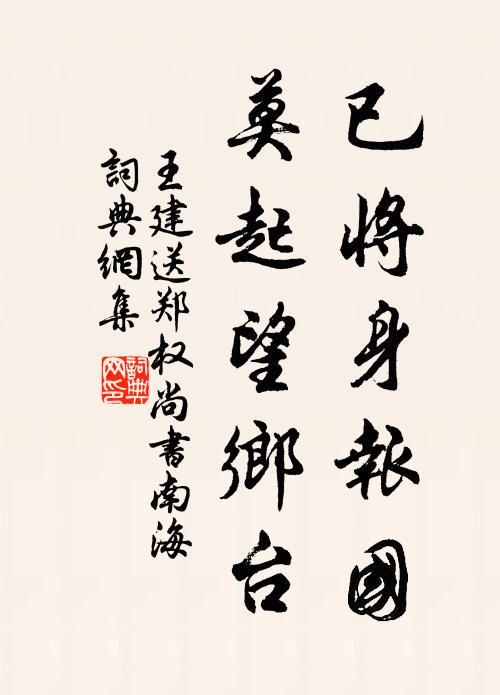 已將身報國
莫起望鄉台
王建送郑权尚書南海
詞典網集
詞典
网印